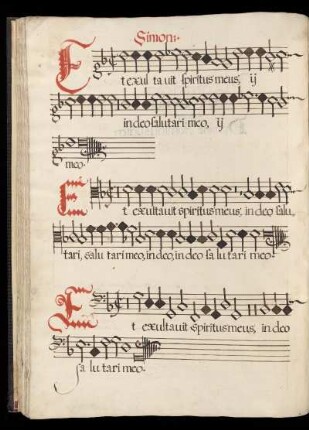 Simon:
Et exultauit spiritus meus, ij
in deo salutari meo, ij
meo.
Et exultauit spiritus meus, in deo salu,
tari, salutari meo, in deo, in deo salutari meo.
Et exultauit spiritus meus, in deo
salutari meo.